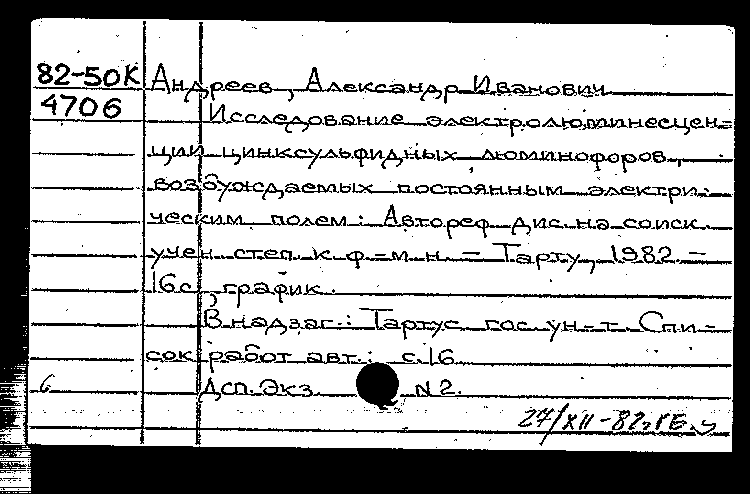 82-50К Андреев, Александр Иванович
4706 Исследование электролюминесцен-
ции цинксульфидных люминофоров,
возбуждаемых постоянным электри-
ческим полем: Автореф. дис. на соиск.
учен. степ. к. ф.-м. н. - Тарту, 1982. -
16 с., график.
В надзаг.: Тартус. гос. ун-т. Спи-
сок работ авт.: с. 16
6 Дсп. Экз. N 2.
27/XII-82г.